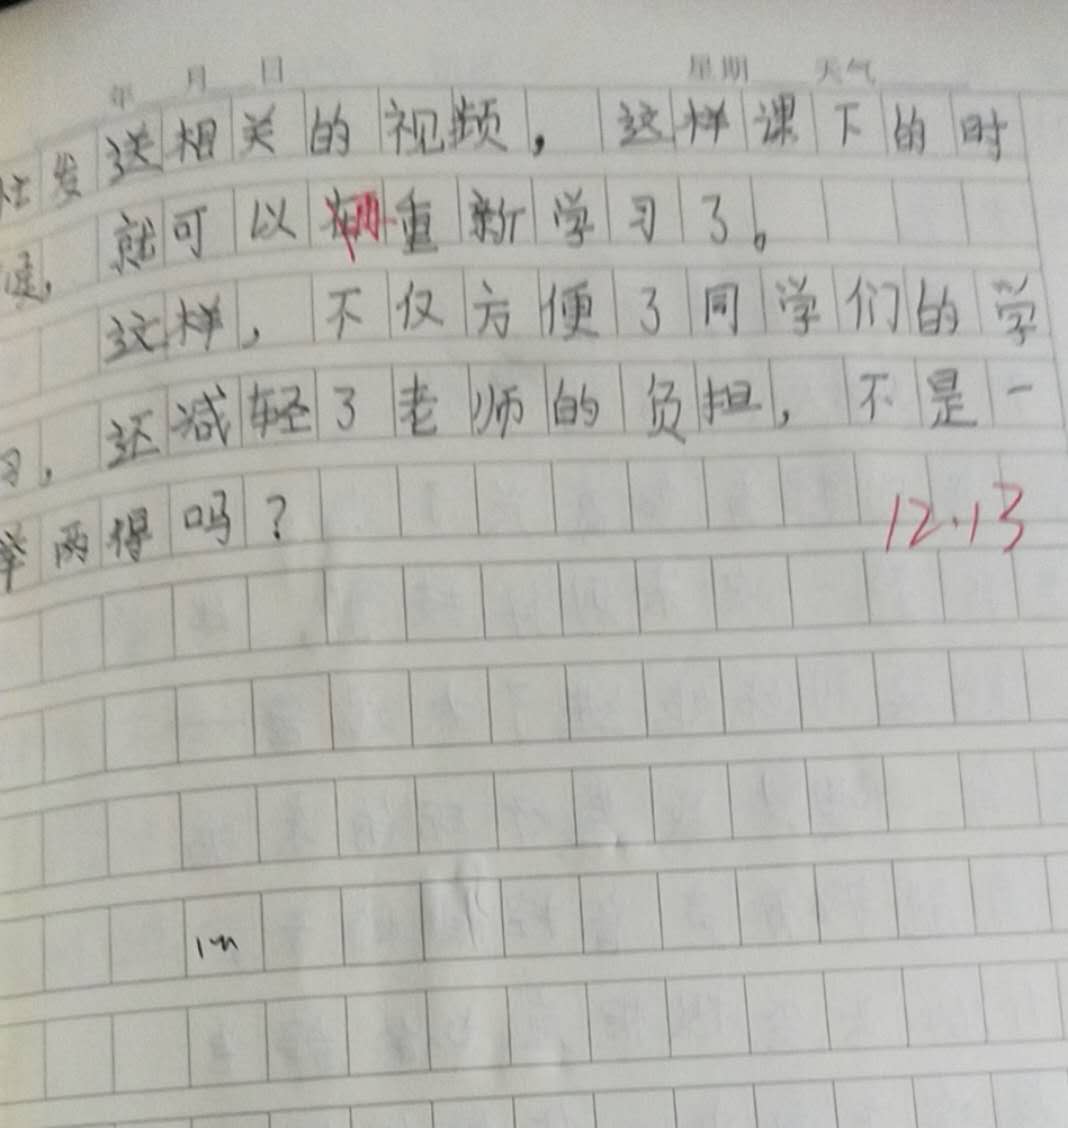 年 月 日 星期 天气
发送相关的视频，这样课下的时
就可以重新学习了。
这样，不仅方便了同学们的学
习，还减轻了老师的负担，不是一
举两得吗？
12.13